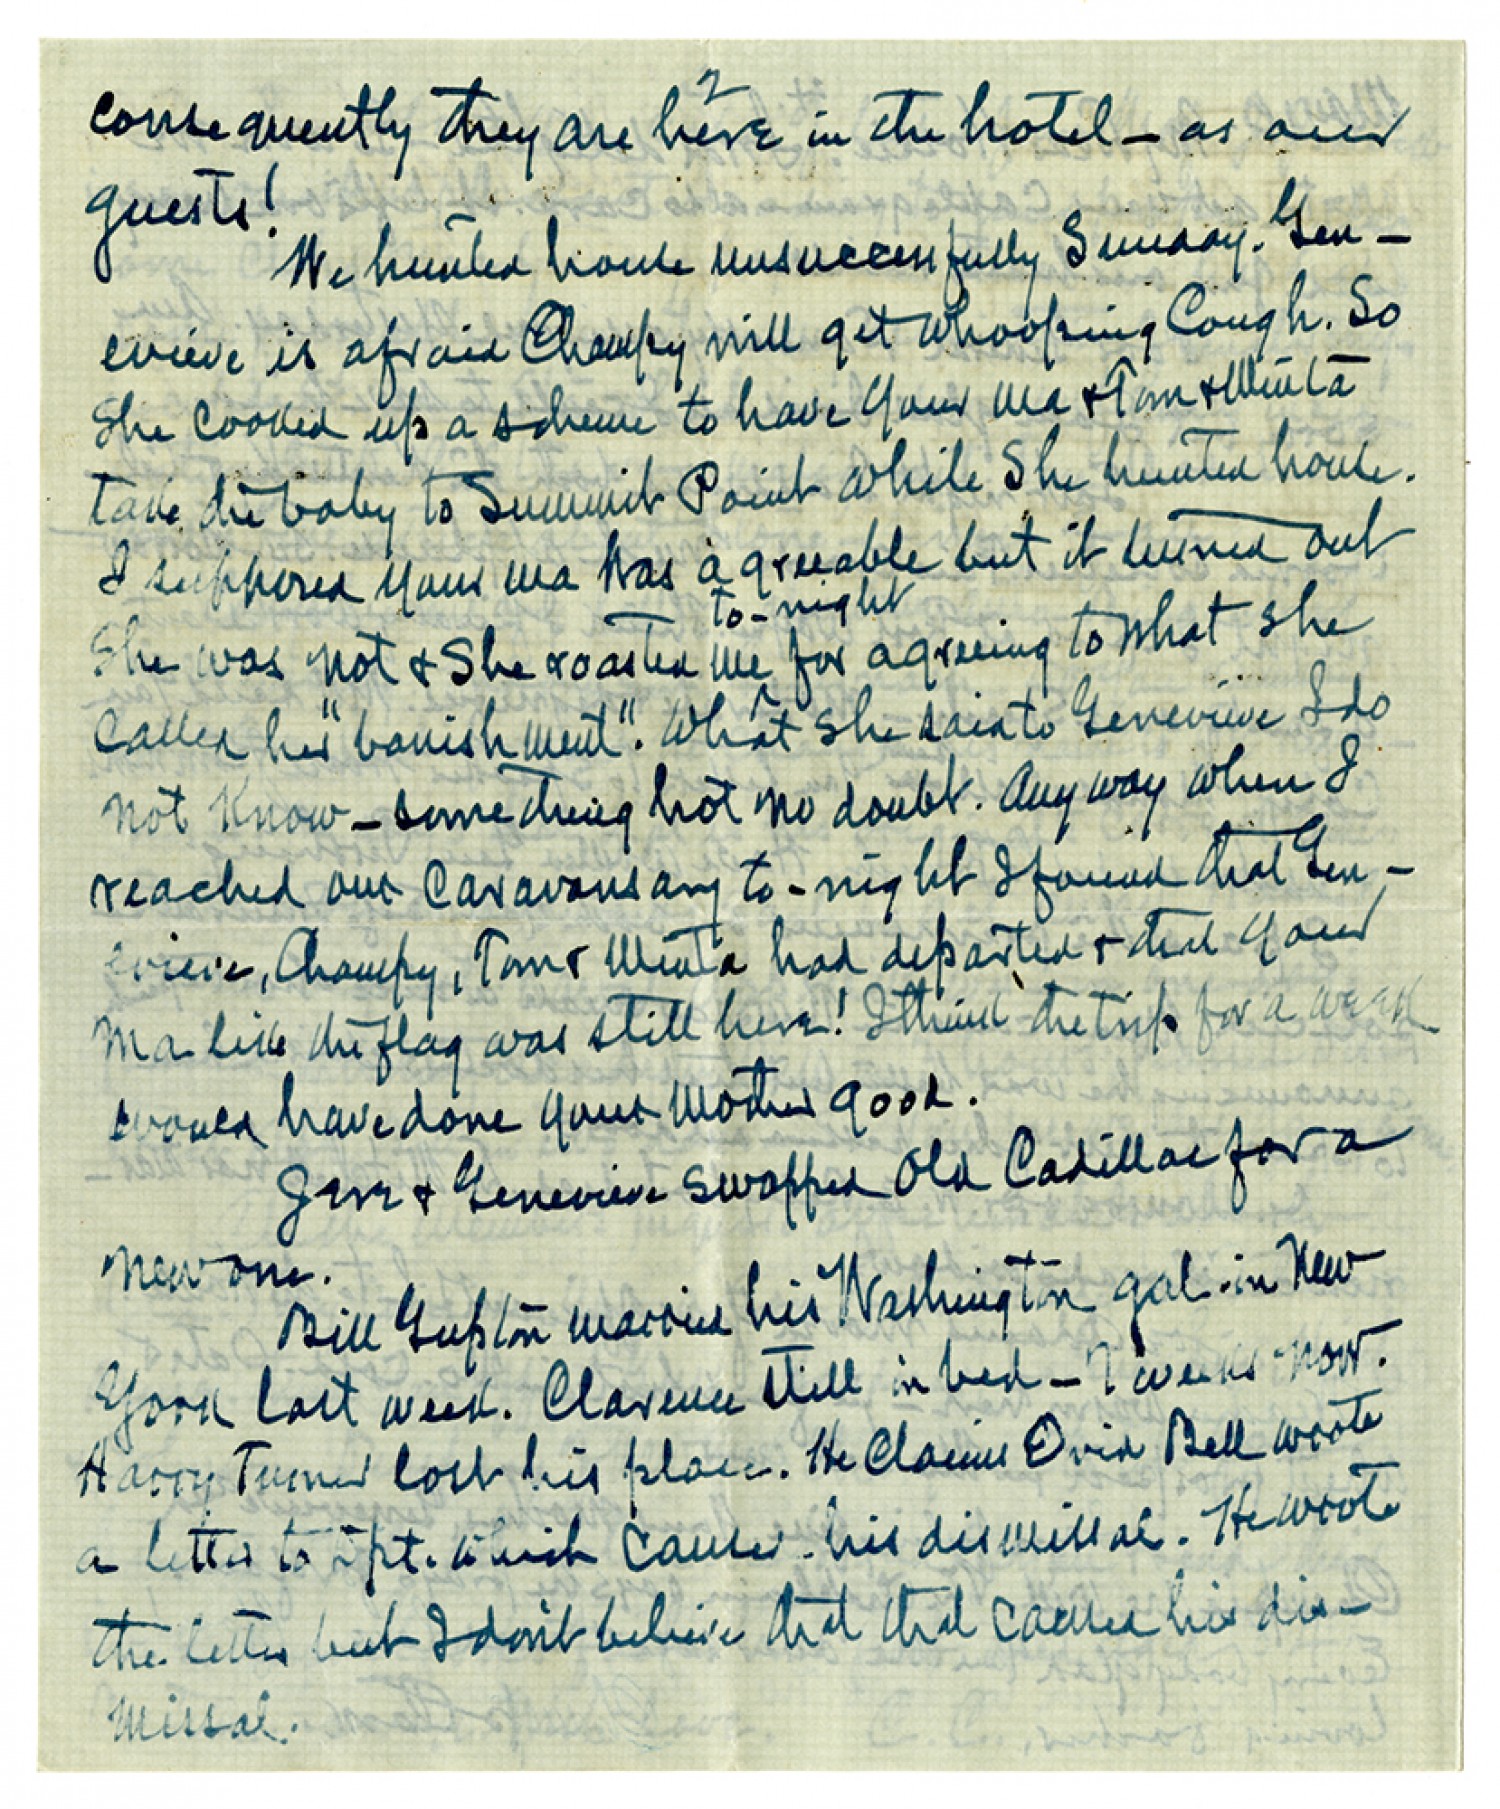 2
consequently they are here in the hotel – as our
guests!
We hunted house unsuccessfully Sunday. Gen-
evieve is afraid Champy will get whooping cough. So
she cooked up a scheme to have your ma & Tom & Minta
take the baby to Summit Point while she hunted house.
I supposed your ma was agreeable but it turned out
to-night
she was not & she roasted me ^ for agreeing to what she
called her "banishment". What she said to Genevieve I do
not know – something hot no doubt. Anyway when I
reached our caravansary to-night I found that Gen-
evieve, Champy, Tom & Minta had departed & that your
ma like the flag was still here! I think the trip for a week
would have done your mother good.
Gene & Genevieve swapped old Cadillac for a
new one.
Bill Gupton married his Washington gal in New
York last week. Clarence still in bed – 7 weeks now.
Harry Turner lost his place. He claims Ovid Bell wrote
a letter to Dpt. which caused his dismissal. He wrote
the letter but I don't believe that that caused his dis-
missal.